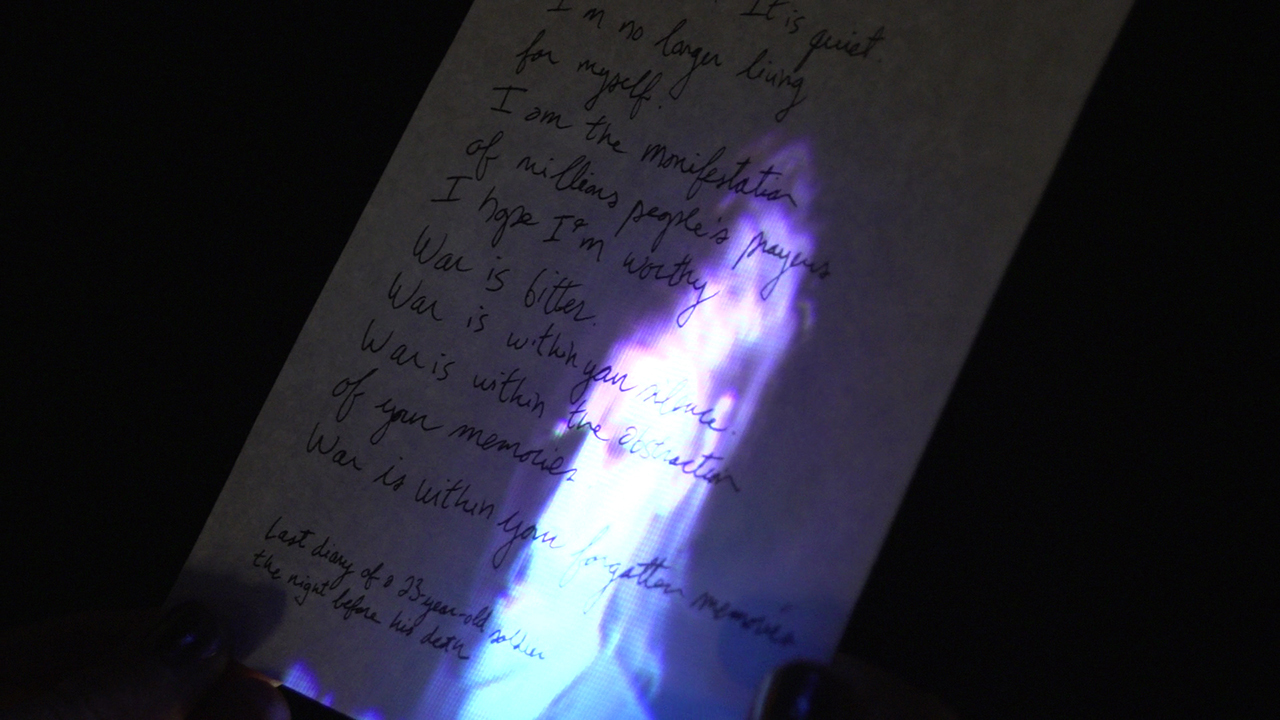 It is quiet.
I'm no longer living
for myself.
I am the manifestation
of millions people's prayers
I hope I'm worthy
War is bitter.
War is within your silence.
War is within the abstraction
of your memories
War is within your forgotten memories
Last diary of a 23-year-old soldier
the night before his death